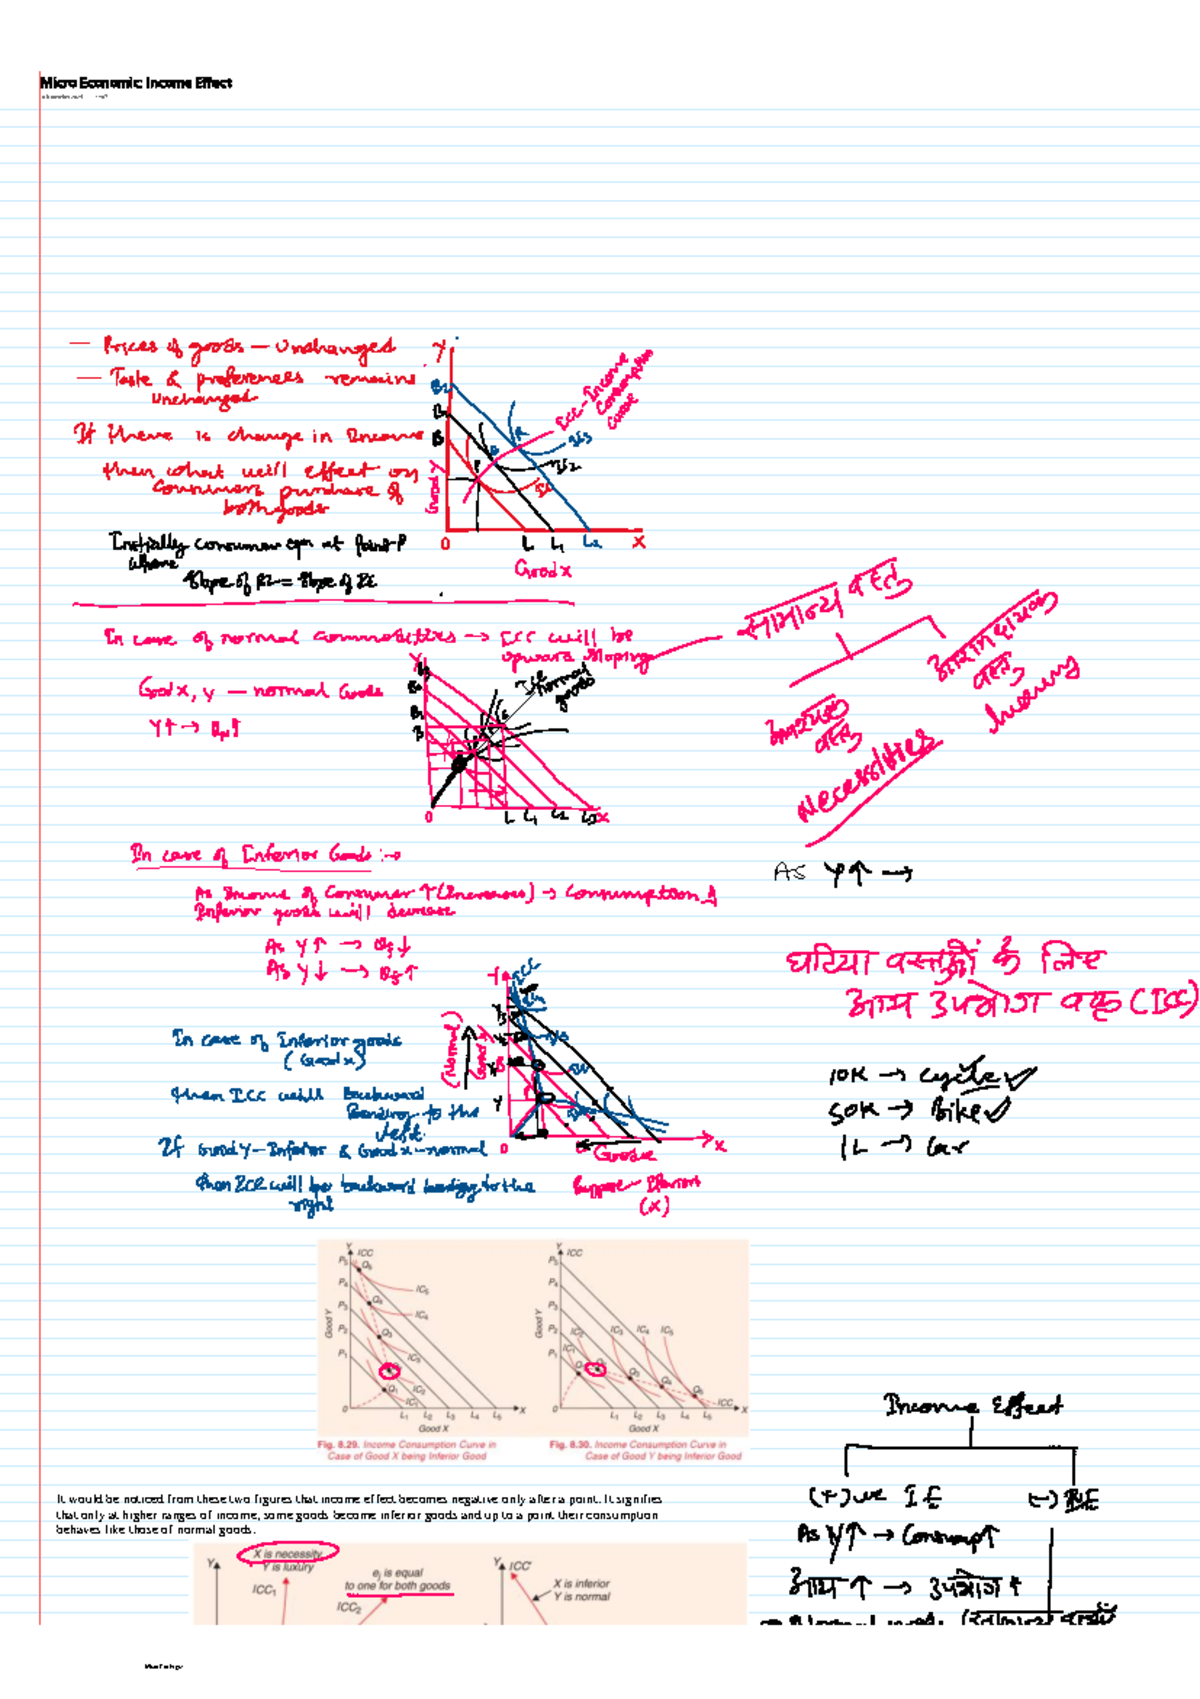 Micro Economic Income Effect
— Prices of goods — Unchanged
— Taste & preferences remains
Unchanged
If there is change in Income
then what will effect on
Consumers purchase of
both goods
Initially consumer eqm at Point P
where
Slope of BL = Slope of IC
Y
B2
B1
B
Good Y
P
R
IC3
IC2
ICC - Income
Consumption
Curve
O
L
L1
L2
X
Good X
In case of normal commodities → ICC will be
upward sloping
Good X, Y — normal Goods
Y↑ →
ICC
normal
goods
O
L
L1
L2
L3
X
सामान्य वस्तु
आवश्यक
वस्तु
Necessities
आरामदायक
वस्तु
luxury
In case of Inferior Goods :→
As Income of Consumer ↑ (Increases) → Consumption of
Inferior goods will decrease
As Y↑ →
As Y↓ →
As Y↑ →
घटिया वस्तुओं के लिए
आय उपभोग वक्र (ICC)
In case of Inferior goods
(Good X)
then ICC will Backward
Bending to the
left.
If Good Y - Inferior & Good X - normal
then ICC will be backward bending to the
right
ICC
(Normal)
Good Y
O
X
Good X
Suppose - Inferior
(X)
10K → Cycle ✓
50K → Bike ✓
1L → Car
Y
ICC
P5
P4
P3
P2
P1
Q5
Q4
Q3
Q1
IC5
IC4
IC3
IC2
IC1
Good Y
O
L1 L2 L3 L4 L5 X
Good X
Fig. 8.29. Income Consumption Curve in
Case of Good X being Inferior Good
Y
ICC
P5
P4
P3
P2
P1
IC2
IC1
IC3
IC4
IC5
Good Y
O
L1 L2 L3 L4 L5
ICC
X
Good X
Fig. 8.30. Income Consumption Curve in
Case of Good Y being Inferior Good
It would be noticed from these two figures that income effect becomes negative only after a point. It signifies
that only at higher ranges of income, some goods become inferior goods and up to a point their consumption
behaves like those of normal goods.
Income Effect
(+)ve I.E
(-) IE
As Y↑ → Consump↑
आय ↑ → उपभोग ↑
Y
X is necessity
Y is luxury
ICC1
ej is equal
to one for both goods
ICC2
Y
ICC'
X is inferior
Y is normal